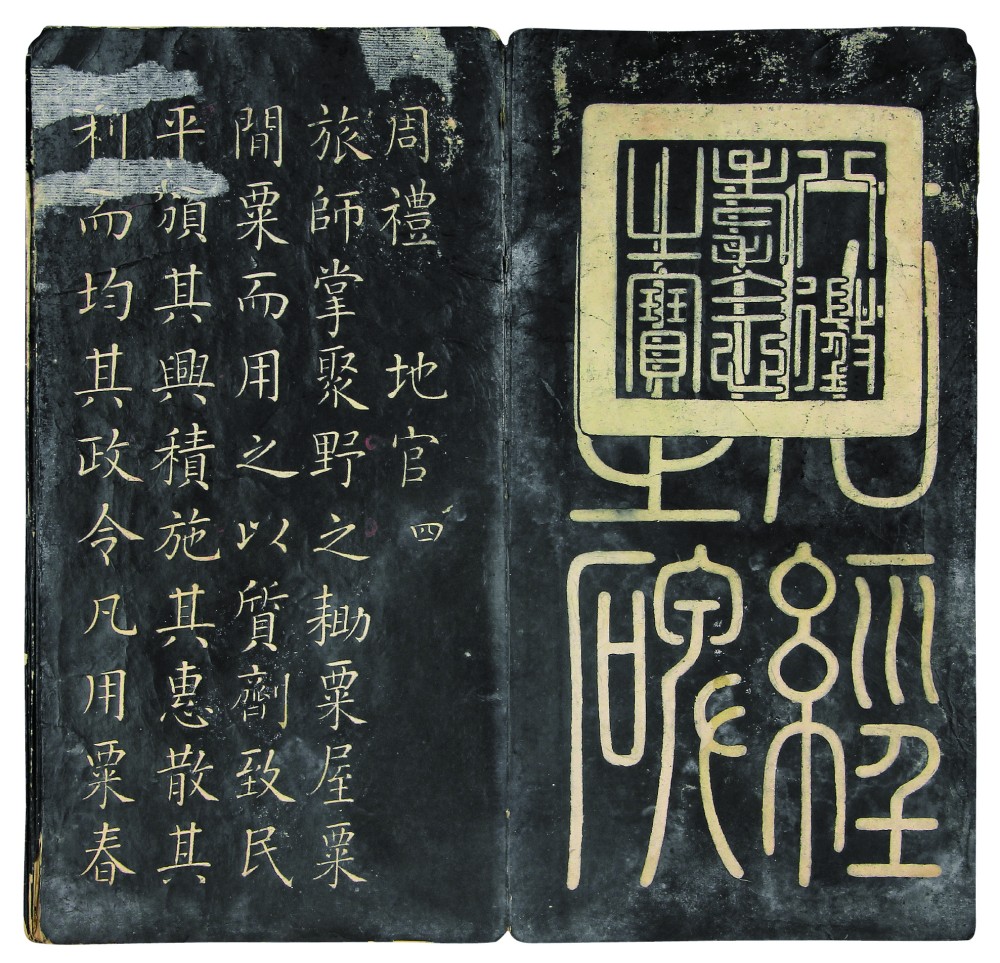 八徵
耄念
之寶
石經
之碑
周禮 地官 四
旅師掌聚野之耡粟屋粟
間粟而用之以質劑致民
平頒其興積施其惠散其
利而均其政令凡用粟春